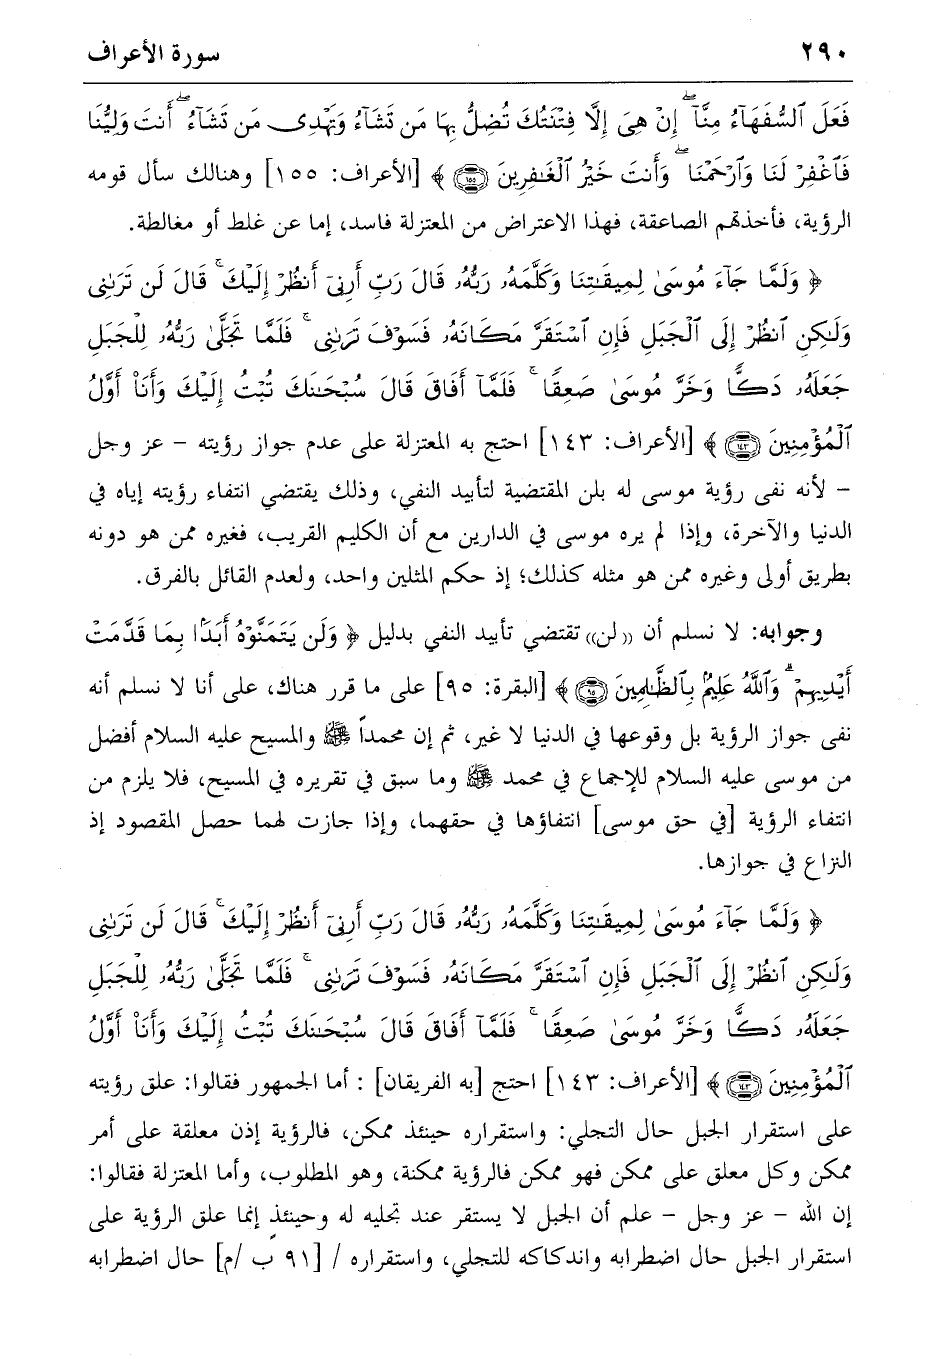 ٢٩٠ سورة الأعراف
فَعَلَ ٱلسُّفَهَآءُ مِنَّآ ۖ إِنْ هِىَ إِلَّا فِتْنَتُكَ تُضِلُّ بِهَا مَن تَشَآءُ وَتَهْدِى مَن تَشَآءُ ۖ أَنتَ وَلِيُّنَا
فَٱغْفِرْ لَنَا وَٱرْحَمْنَا ۖ وَأَنتَ خَيْرُ ٱلْغَٰفِرِينَ ﴿١٥٥﴾ ﴾ [الأعراف: ١٥٥] وهنالك سأل قومه
الرؤية، فأخذتهم الصاعقة، فهذا الاعتراض من المعتزلة فاسد، إما عن غلط أو مغالطة.
﴿ وَلَمَّا جَآءَ مُوسَىٰ لِمِيقَٰتِنَا وَكَلَّمَهُۥ رَبُّهُۥ قَالَ رَبِّ أَرِنِىٓ أَنظُرْ إِلَيْكَ ۚ قَالَ لَن تَرَىٰنِى
وَلَٰكِنِ ٱنظُرْ إِلَى ٱلْجَبَلِ فَإِنِ ٱسْتَقَرَّ مَكَانَهُۥ فَسَوْفَ تَرَىٰنِى ۚ فَلَمَّا تَجَلَّىٰ رَبُّهُۥ لِلْجَبَلِ
جَعَلَهُۥ دَكًّا وَخَرَّ مُوسَىٰ صَعِقًا ۚ فَلَمَّآ أَفَاقَ قَالَ سُبْحَٰنَكَ تُبْتُ إِلَيْكَ وَأَنَا۠ أَوَّلُ
ٱلْمُؤْمِنِينَ ﴿١٤٣﴾ ﴾ [الأعراف: ١٤٣] احتج به المعتزلة على عدم جواز رؤيته – عز وجل
– لأنه نفى رؤية موسى له بلن المقتضية لتأبيد النفي، وذلك يقتضي انتفاء رؤيته إياه في
الدنيا والآخرة، وإذا لم يره موسى في الدارين مع أن الكليم القريب، فغيره ممن هو دونه
بطريق أولى وغيره ممن هو مثله كذلك؛ إذ حكم المثلين واحد، ولعدم القائل بالفرق.
وجوابه: لا نسلم أن ((لن)) تقتضي تأبيد النفي بدليل ﴿ وَلَن يَتَمَنَّوْهُ أَبَدًۢا بِمَا قَدَّمَتْ
أَيْدِيهِمْ ۗ وَٱللَّهُ عَلِيمٌۢ بِٱلظَّٰلِمِينَ ﴿٩٥﴾ ﴾ [البقرة: ٩٥] على ما قرر هناك، على أنا لا نسلم أنه
نفى جواز الرؤية بل وقوعها في الدنيا لا غير، ثم إن محمداً ﷺ والمسيح عليه السلام أفضل
من موسى عليه السلام للإجماع في محمد ﷺ وما سبق في تقريره في المسيح، فلا يلزم من
انتفاء الرؤية [في حق موسى] انتفاؤها في حقهما، وإذا جازت لهما حصل المقصود إذ
النزاع في جوازها.
﴿ وَلَمَّا جَآءَ مُوسَىٰ لِمِيقَٰتِنَا وَكَلَّمَهُۥ رَبُّهُۥ قَالَ رَبِّ أَرِنِىٓ أَنظُرْ إِلَيْكَ ۚ قَالَ لَن تَرَىٰنِى
وَلَٰكِنِ ٱنظُرْ إِلَى ٱلْجَبَلِ فَإِنِ ٱسْتَقَرَّ مَكَانَهُۥ فَسَوْفَ تَرَىٰنِى ۚ فَلَمَّا تَجَلَّىٰ رَبُّهُۥ لِلْجَبَلِ
جَعَلَهُۥ دَكًّا وَخَرَّ مُوسَىٰ صَعِقًا ۚ فَلَمَّآ أَفَاقَ قَالَ سُبْحَٰنَكَ تُبْتُ إِلَيْكَ وَأَنَا۠ أَوَّلُ
ٱلْمُؤْمِنِينَ ﴿١٤٣﴾ ﴾ [الأعراف: ١٤٣] احتج [به الفريقان] : أما الجمهور فقالوا: علق رؤيته
على استقرار الجبل حال التجلي: واستقراره حينئذ ممكن، فالرؤية إذن معلقة على أمر
ممكن وكل معلق على ممكن فهو ممكن فالرؤية ممكنة، وهو المطلوب، وأما المعتزلة فقالوا:
إن الله – عز وجل – علم أن الجبل لا يستقر عند تجليه له وحينئذ إنما علق الرؤية على
استقرار الجبل حال اضطرابه واندكاكه للتجلي، واستقراره / [٩١ ب /م] حال اضطرابه